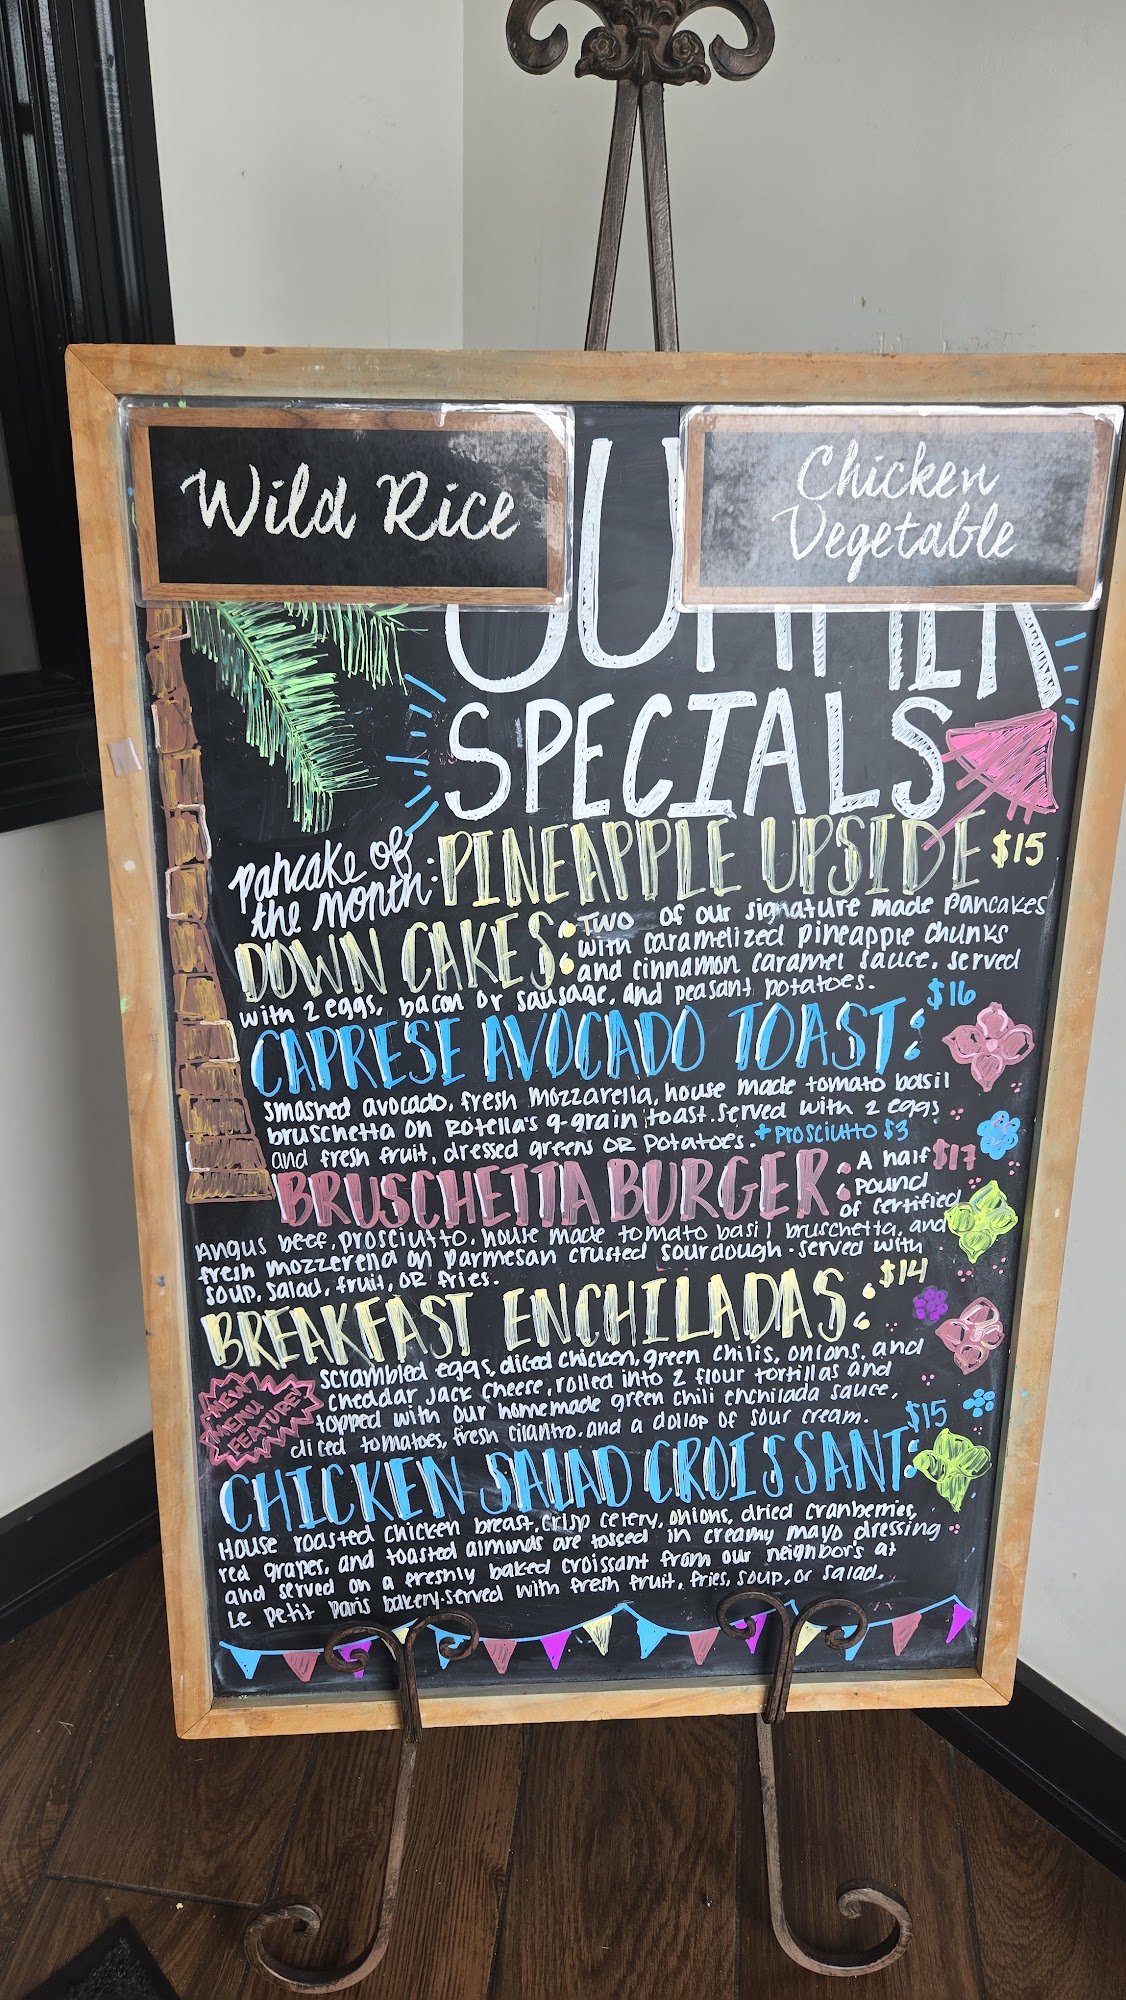 Wild Rice
Chicken
Vegetable
SUMMER
SPECIALS
pancake of
the month: PINEAPPLE UPSIDE $15
DOWN CAKES: TWO of our signature made pancakes
with caramelized pineapple chunks
and cinnamon caramel sauce. served
with 2 eggs, bacon or sausage, and peasant potatoes.
CAPRESE AVOCADO TOAST: $16
smashed avocado, fresh mozzarella, house made tomato basil
bruschetta on Rotella's 9-grain toast. served with 2 eggs
and fresh fruit, dressed greens OR potatoes. + prosciutto $3
BRUSCHETTA BURGER: A half $17
pound
of certified
Angus beef, prosciutto, house made tomato basil bruschetta, and
fresh mozzerella on parmesan crusted sourdough. served with
soup, salad, fruit, OR fries.
BREAKFAST ENCHILADAS: $14
scrambled eggs, diced chicken, green chilis, onions, and
cheddar jack cheese, rolled into 2 flour tortillas and
topped with our homemade green chili enchilada sauce,
diced tomatoes, fresh cilantro, and a dollop of sour cream.
NEW
MENU
FEATURE!
CHICKEN SALAD CROISSANT: $15
House roasted chicken breast, crisp celery, onions, dried cranberries,
red grapes, and toasted almonds are tossed in creamy mayo dressing
and served on a freshly baked croissant from our neighbor's at
Le Petit Paris bakery. served with fresh fruit, fries, soup, or salad.